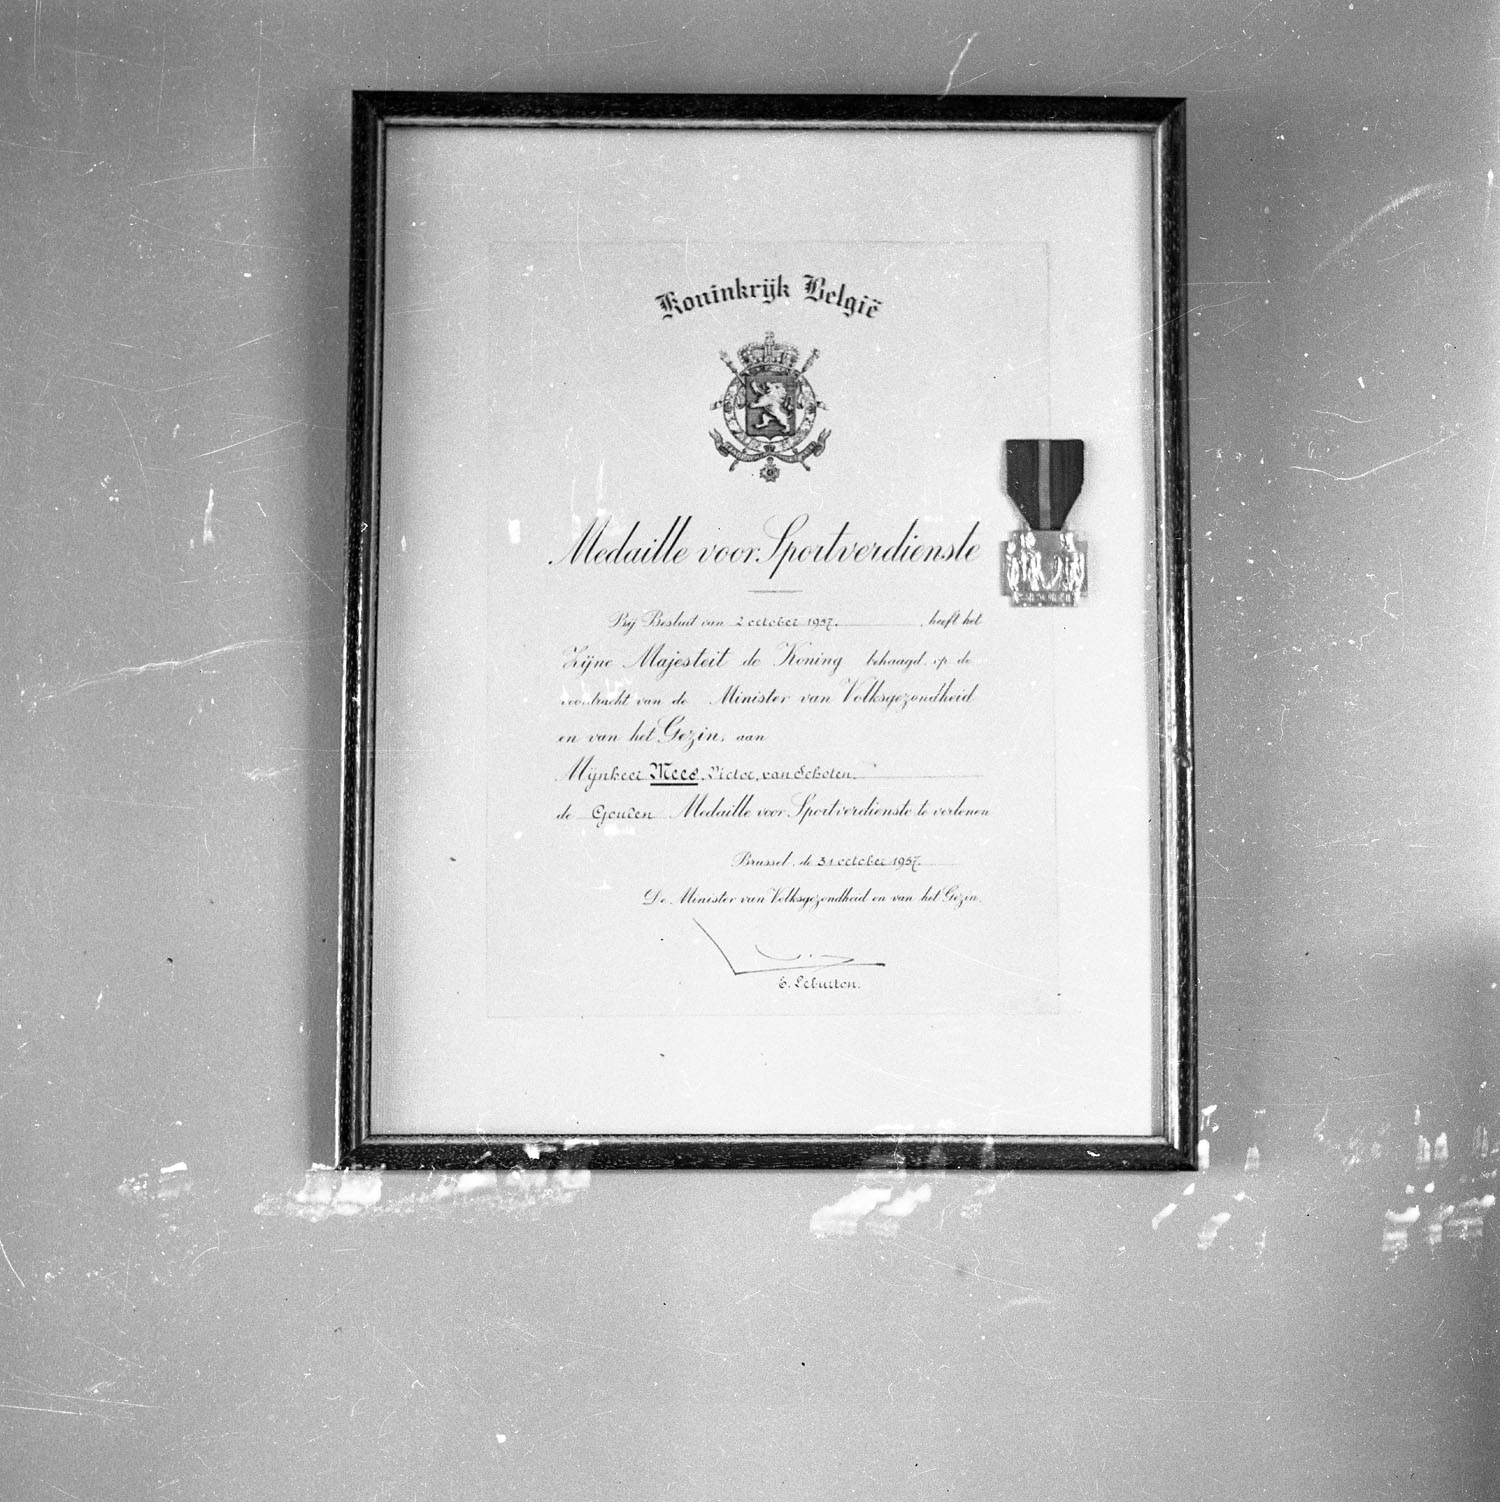 Koninkrijk België
Medaille voor Sportverdienste
Bij Besluit van 2 october 1957. , heeft het
Zijne Majesteit de Koning behaagd, op de
voordracht van de Minister van Volksgezondheid
en van het Gezin, aan
Mijnheer Mees, Victor, van Schoten.
de Gouden Medaille voor Sportverdienste te verlenen
Brussel, de 31 october 1957.
De Minister van Volksgezondheid en van het Gezin.
E. Leburton.